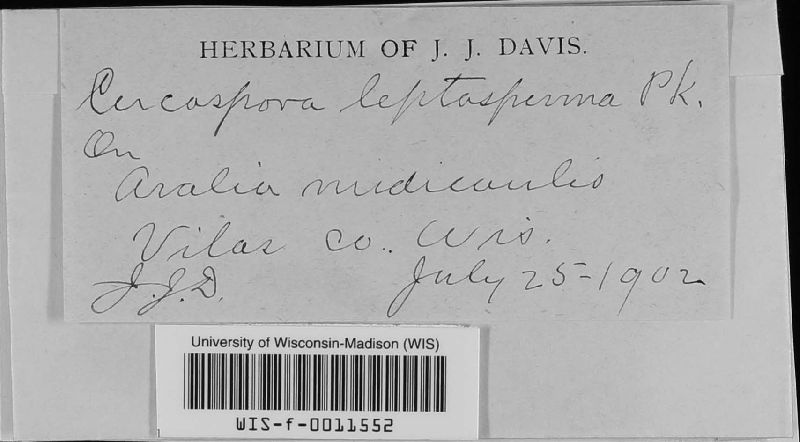 HERBARIUM OF J. J. DAVIS.
Cercospora leptosperma Pk.
On
Aralia nudicaulis
Vilas co. Wis.
J.J.D. July 25-1902
University of Wisconsin-Madison (WIS)
WIS-f-0011552